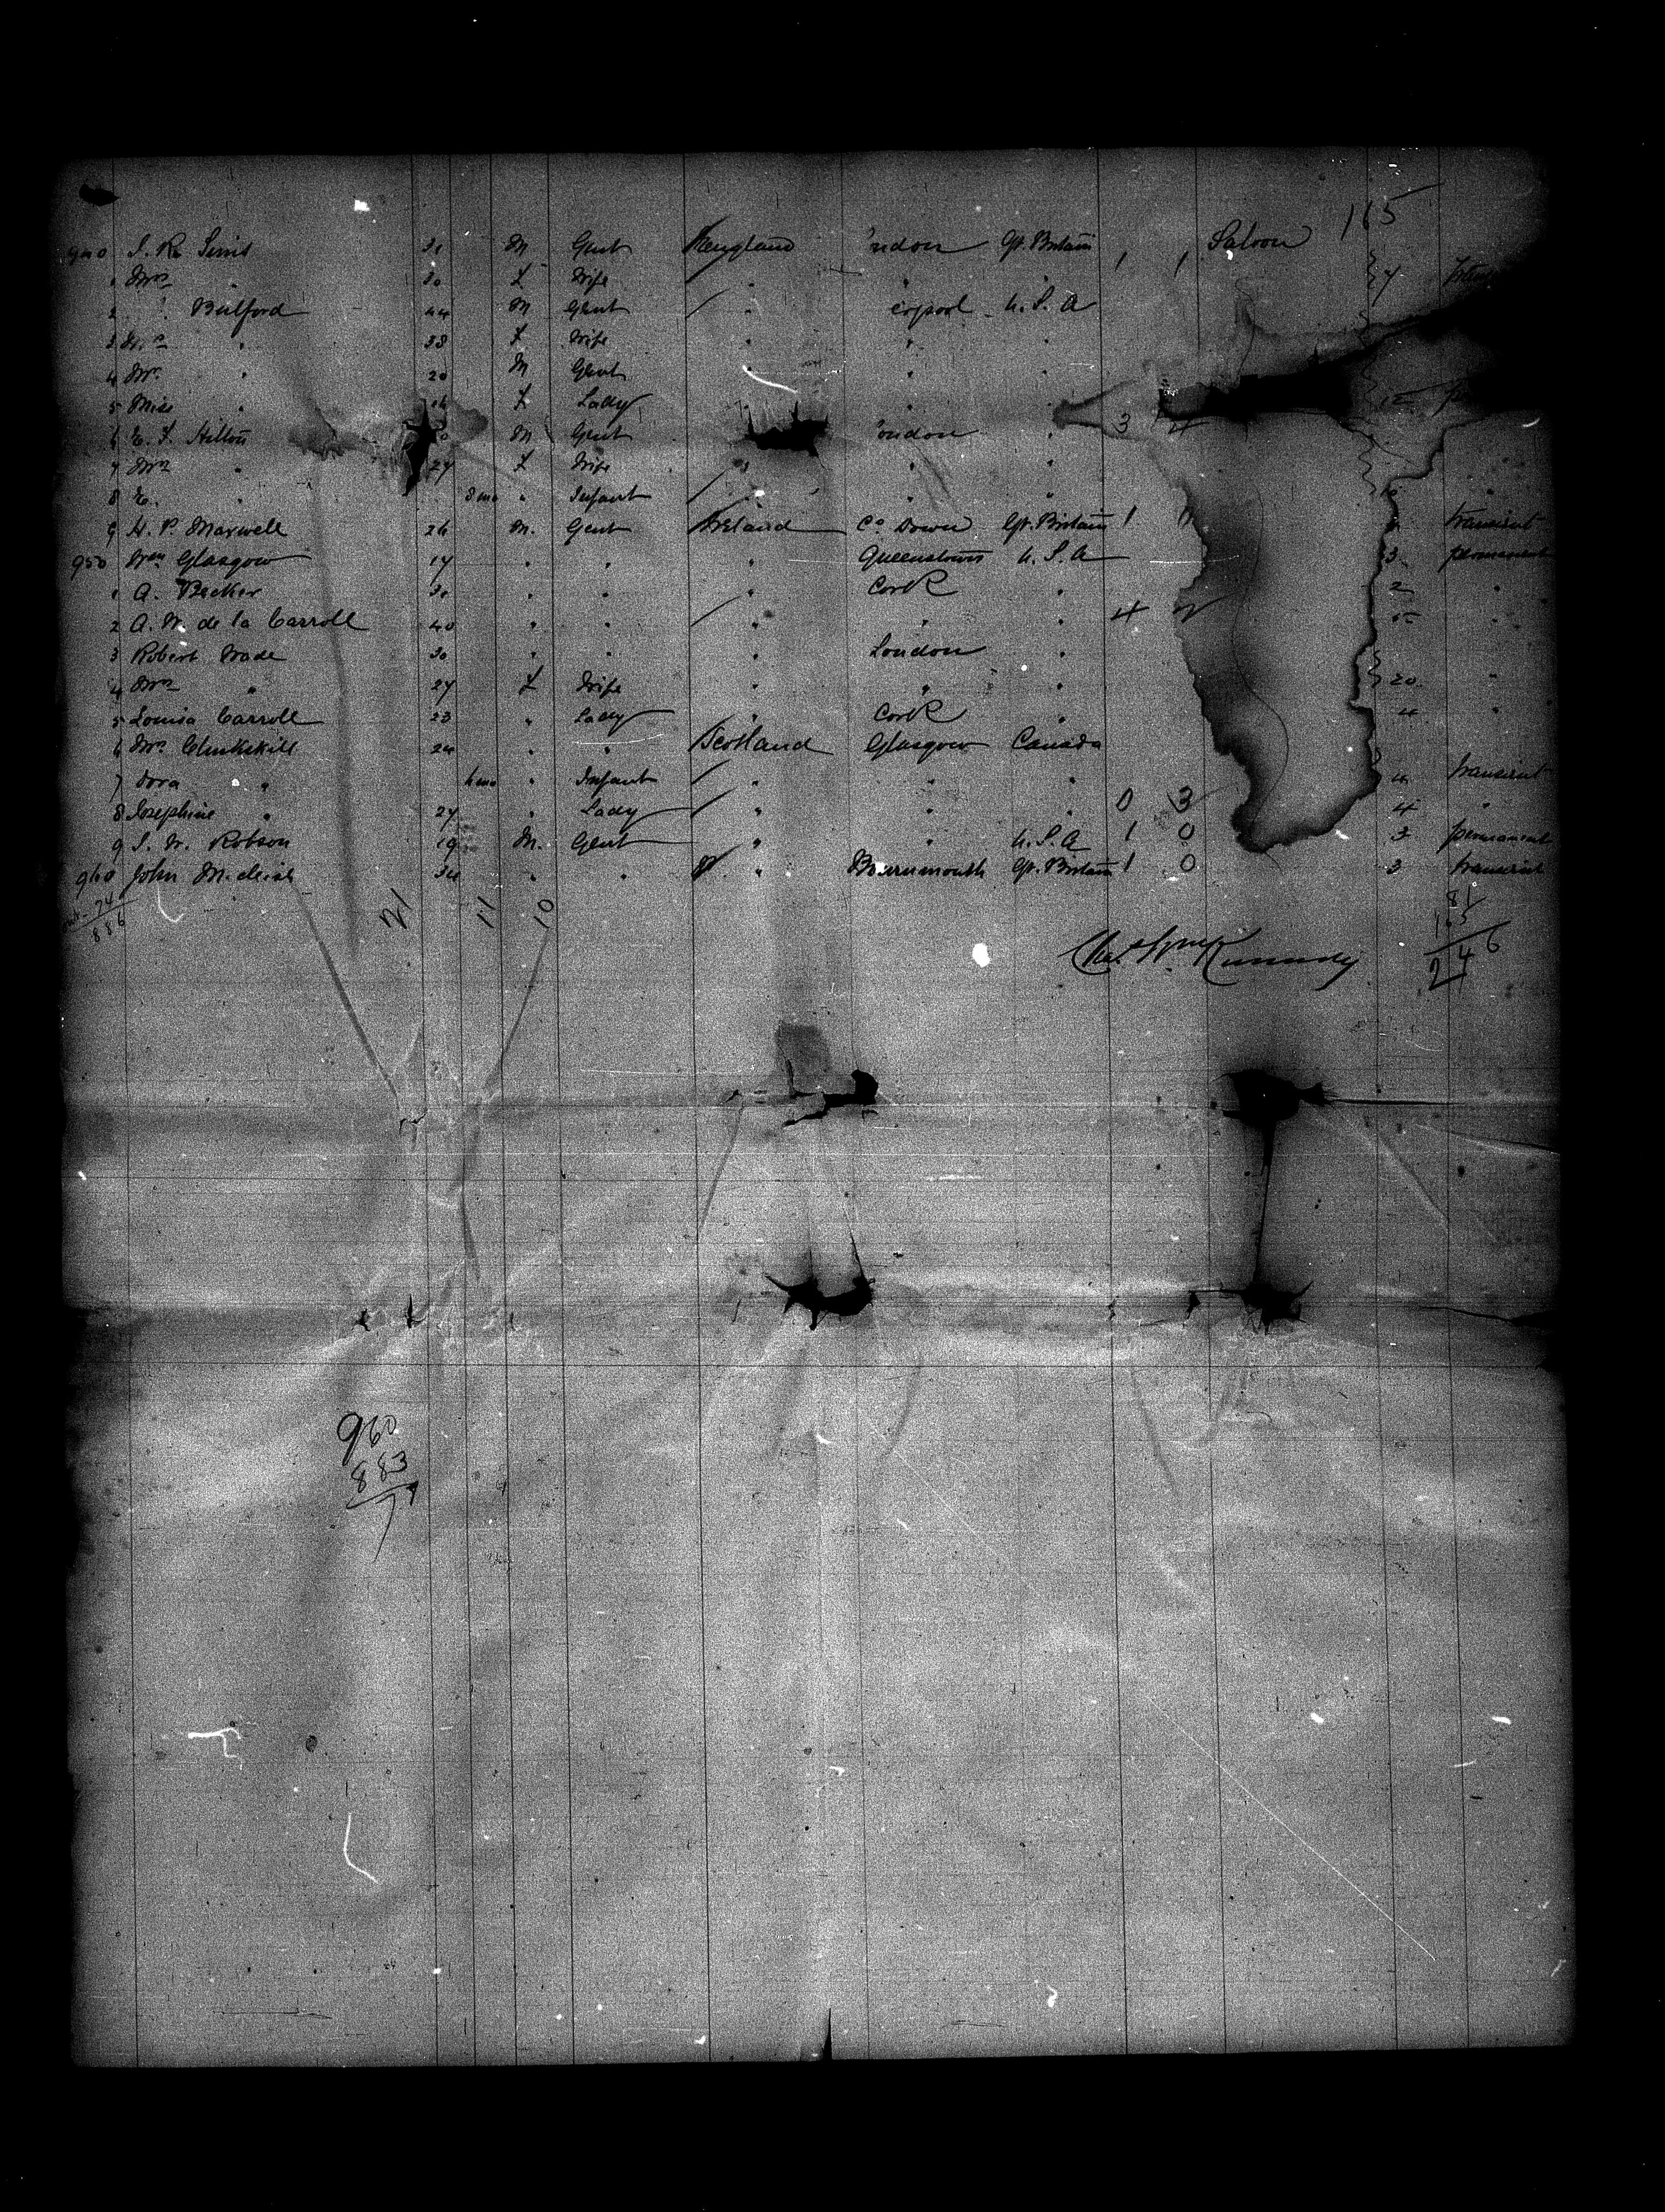 165
940 S. R. Sims 31 M Gent England ndon Gt. Britain 1 1 Saloon
1 Mrs " 30 F Wife " " " 7
2 Bulford 44 M Gent " erpool U.S.A
3 " 38 F Wife " " "
4 Mr. " 20 M Gent " " "
5 Miss " 16 F Lady " " "
6 E. F. Hilton M Gent ondon " 3 4
7 Mrs " 27 F Wife " " "
8 E. " 8 mo " Infant " " " "
9 H. P. Maxwell 26 M. Gent Ireland Co. Down Gt. Britain 1 transient
950 Wm Glasgow 17 " " " Queenstown U.S.A 3 permanent
1 A. Becker 30 " " " Cork " 2 "
2 A. W. de la Carroll 40 " " " " " 4 "
3 Robert Wade 30 " " " London "
4 Mrs " 27 F Wife " " " 20 "
5 Louisa Carroll 23 " Lady " Cork " 4 "
6 Mrs 24 " " Scotland Glasgow Canada
7 Dora " mo " Infant " " " 4 transient
8 Josephine " 27 " Lady " " " 0 3 4 "
9 S. W. Robson 19 M. Gent " " U.S.A 1 0 3 permanent
960 John 34 " " " Bournemouth Gt. Britain 1 0 3 transient
74 21 11 10 81
886 165
Kennedy 246
960
883
77